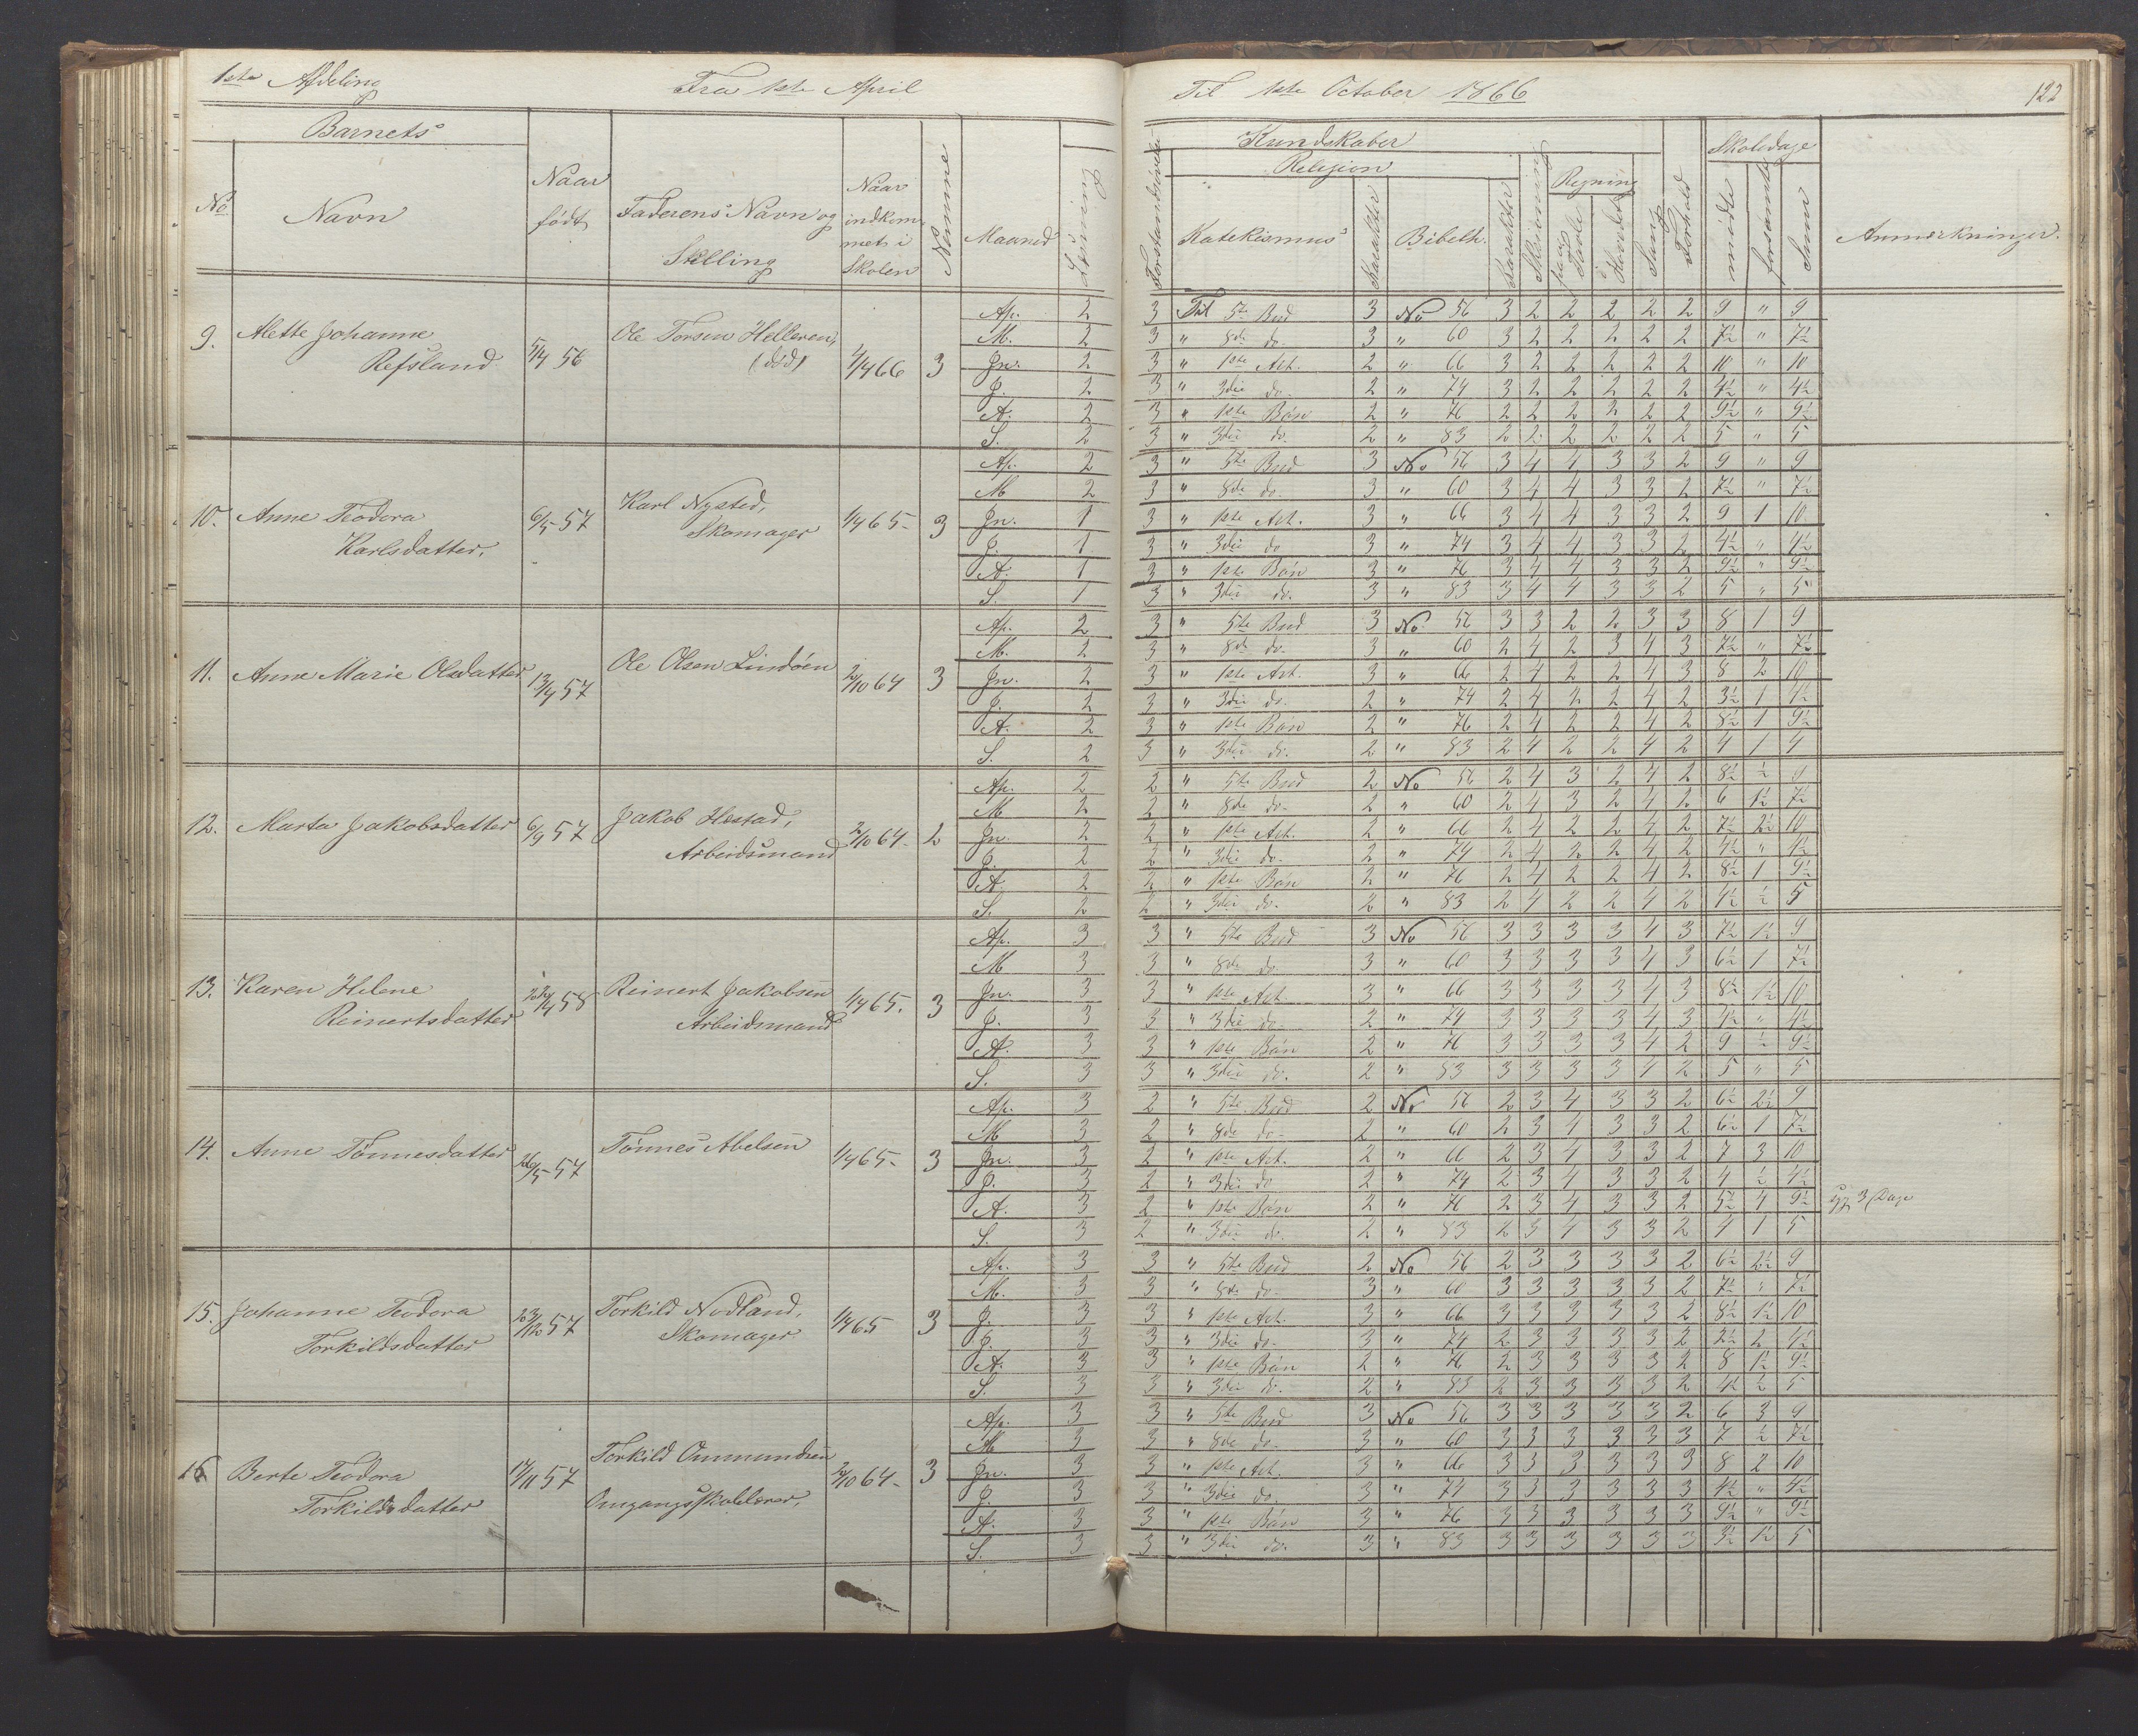 1ste Afdeling Fra 1ste April Til 1ste October 1866 122
Barnets Kundskaber Skoledage
Religion Regning
No Navn Naar født Faderens Navn og Stilling Naar indkommet i Skolen Nemme Maaned Læsning Forstandsøvelse Katekismus Karakter Bibelh. Karakter Skrivning paa Tavle i Hovedet Sang Forhold mødte forsømte Sum Anmærkninger.
9. Alette Johanne Refsland 5/4 56 Ole Torsen Helleren, (død) 1/4 66 3
Ap. 2 3 Til 5te Bud 3 No 56 3 2 2 2 2 2 9 " 9
M. 2 3 " 8de do. 3 " 60 3 2 2 2 2 2 7½ " 7½
Jn. 2 3 " 1ste Art. 2 " 66 3 2 2 2 2 2 10 " 10
J. 2 3 " 3die do. 2 " 74 3 2 2 2 2 2 4½ " 4½
A. 2 3 " 1ste Bøn 2 " 76 2 2 2 2 2 2 9½ " 9½
S. 2 3 " 3die do. 2 " 83 2 2 2 2 2 2 5 " 5
10. Anne Teodora Karlsdatter, 6/5 57 Karl Nysted, Skomager 1/4 65 3
Ap. 2 3 " 5te Bud 3 No 56 3 4 4 3 3 2 9 " 9
M 2 3 " 8de do. 3 " 60 3 4 4 3 3 2 7½ " 7½
Jn. 1 3 " 1ste Art. 3 " 66 3 4 4 3 3 2 9 1 10
J. 1 3 " 3die do 3 " 74 3 4 4 3 3 2 4½ " 4½
A. 1 3 " 1ste Bøn 3 " 76 3 4 4 3 3 2 9½ " 9½
S. 1 3 " 3die do. 3 " 83 3 4 4 3 3 2 5 " 5
11. Anne Marie Olsdatter 13/4 57 Ole Olsen Lindøen 2/10 64 3
Ap. 2 3 " 5te Bud 3 No 56 3 3 2 2 3 3 8 1 9
M. 2 3 " 8de do. 3 " 60 2 4 2 3 4 3 7½ " 7½
Jn. 2 3 " 1ste Art. 3 " 66 2 4 2 2 4 3 8 2 10
J. 2 3 " 3die do. 2 " 74 2 4 2 2 4 2 3½ 1 4½
A. 2 3 " 1ste Bøn 2 " 76 2 4 2 2 4 2 8½ 1 9½
S. 2 3 " 3die do. 2 " 83 2 4 2 2 4 2 4 1 4
12. Marta Jakobsdatter 6/9 57 Jakob Hestad, Arbeidsmand 2/10 64 2
Ap. 2 2 " 5te Bud 2 No 56 2 4 3 2 4 2 8½ ½ 9
M 2 2 " 8de do. 2 " 60 2 4 3 2 4 2 6 1½ 7½
Jn. 2 2 " 1ste Art. 2 " 66 2 4 2 2 4 2 7½ 2½ 10
J. 2 2 " 3die do. 2 " 74 2 4 2 2 4 2 4½ " 4½
A. 2 2 " 1ste Bøn 2 " 76 2 4 2 2 4 2 8½ 1 9½
S. 2 2 " 3die do. 2 " 83 2 4 2 2 4 2 4½ ½ 5
13. Karen Helene Reinertsdatter 58 Reinert Jakobsen Arbeidsmand 1/4 65. 3
Ap. 3 3 " 5te Bud 3 No 56 3 3 3 3 4 3 7½ 1½ 9
M 3 3 " 8de do. 3 " 60 3 3 3 3 4 3 6½ 1 7½
Jn. 3 3 " 1ste Art 3 " 66 3 3 3 3 4 3 8½ 1½ 10
J. 3 3 " 3die do. 2 " 74 3 3 3 3 4 3 4½ " 4½
A. 3 3 " 1ste Bøn 2 " 76 3 3 3 3 4 2 9 ½ 9½
S. 3 3 " 3die do. 2 " 83 3 3 3 3 4 2 5 " 5
14. Anne Tønnesdatter 26/5 57 Tønnes Abelsen 1/4 65 3
Ap. 3 2 " 5te Bud 2 No 56 2 3 4 3 3 2 6½ 2½ 9
M 3 2 " 8de do 2 " 60 2 3 4 3 3 2 6½ 1 7½
Jn. 3 2 " 1ste Art. 2 " 66 2 3 4 3 3 2 7 3 10
J. 3 2 " 3die do 2 " 74 2 3 4 3 3 2 4 ½ 4½
A. 3 2 " 1ste Bøn 2 " 76 2 3 4 3 3 2 5½ 4 9½ 3 Dage
S. 3 2 " 3die do. 2 " 83 2 3 4 3 3 2 4 1 5
15. Johanne Teodora Torkildsdatter 23/12 57 Torkild Nodland, Skomager 1/4 65 3
Ap. 3 3 " 5te Bud 2 No 56 2 3 3 3 3 2 6½ 2½ 9
M. 3 3 " 8de do. 3 " 60 3 3 3 3 3 2 7½ " 7½
J. 3 3 " 1ste Art. 3 " 66 3 3 3 3 3 2 8½ 1½ 10
J. 3 3 " 3die do. 3 " 74 2 3 3 3 3 2 2½ 2 4½
A. 3 3 " 1ste Bøn 2 " 76 2 3 3 3 3 2 8 1½ 9½
S. 3 3 " 3die do. 2 " 83 2 3 3 3 3 2 4½ ½ 5
16 Berte Teodora Torkildsdatter 17/11 57 Torkild Ommundsen Omgangsskolelærer, 2/10 64 3
Ap. 3 3 " 5te Bud 3 No 56 3 3 3 3 3 2 6 3 9
M 3 3 " 8de do. 3 " 60 3 3 3 3 3 3 7 ½ 7½
Jn. 3 3 " 1ste Art. 3 " 66 3 3 3 3 3 3 8 2 10
J. 3 3 " 3die do. 3 " 74 3 3 3 3 3 3 4½ " 4½
A. 3 3 " 1ste Bøn 3 " 76 3 3 3 3 3 3 9½ " 9½
S. 3 3 " 3die do. 3 " 83 3 3 3 3 3 3 3½ 1½ 5